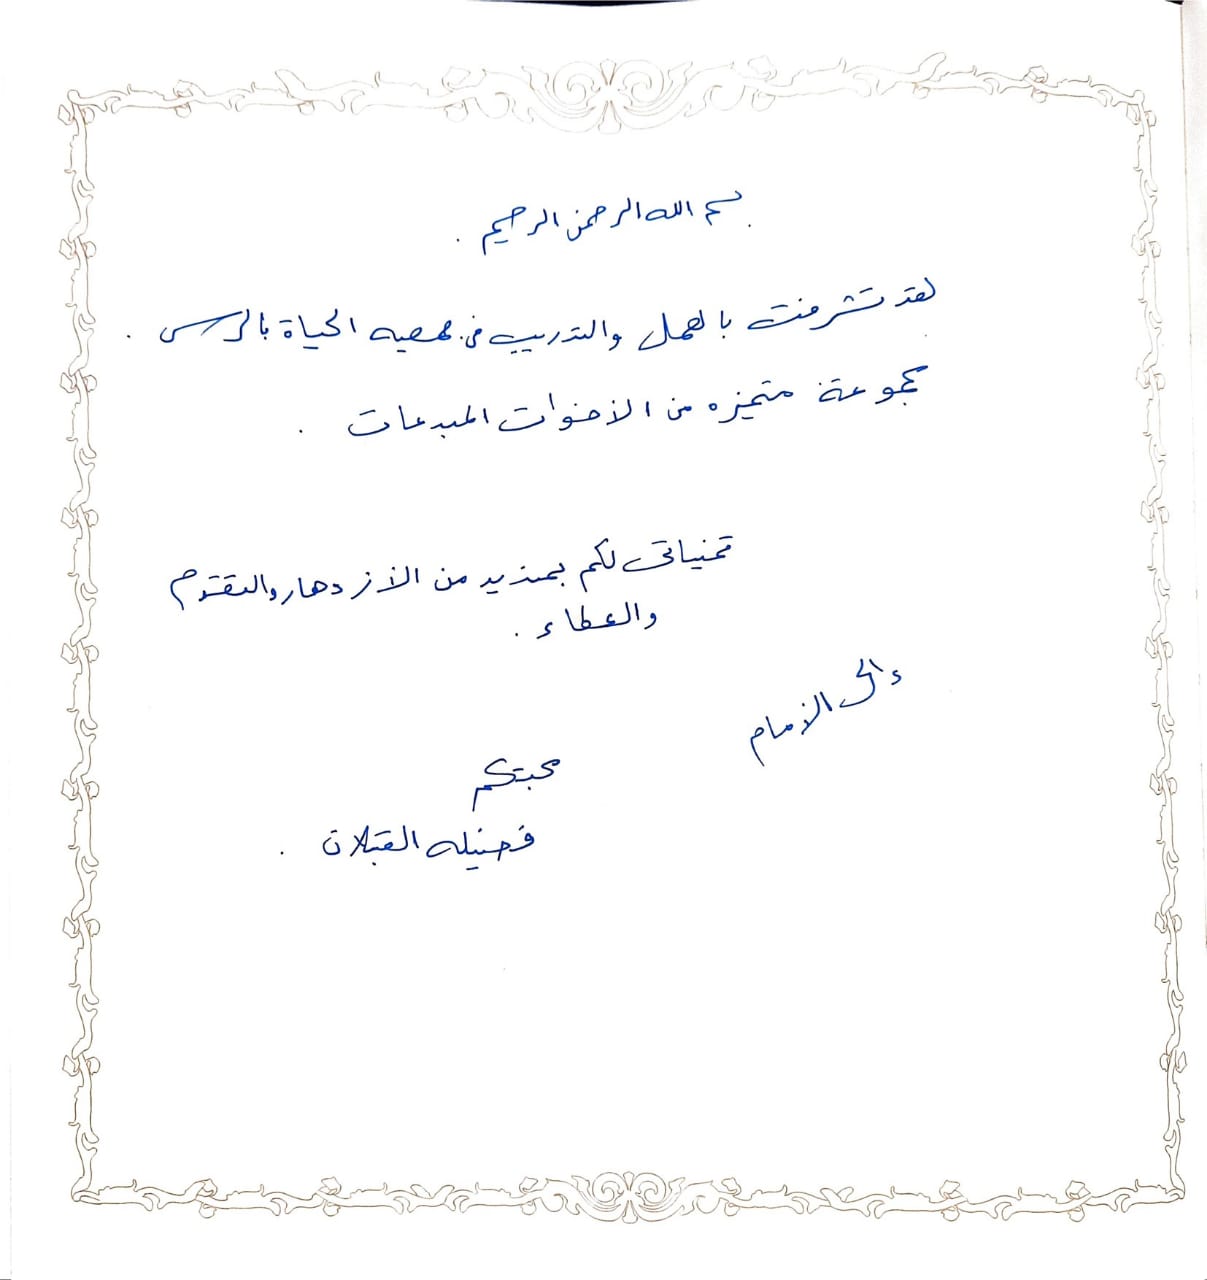 بسم الله الرحمن الرحيم .
لقد تشرفت بالعمل والتدريب في جمعيه الحياة بالرس .
مجموعة متميزه من الأخوات المبدعات .
تمنياتي لكم بمزيد من الأزدهار والتقدم
والعطاء .
والى الأمام
محبتكم
فضيله القبلان .